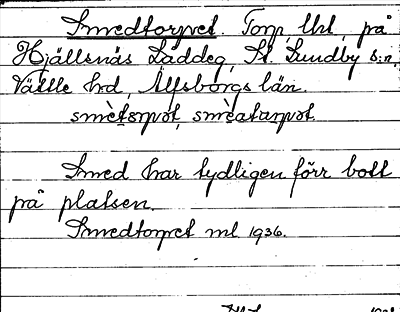 Smedtorpet. Torp, Uhl, på
Hjällsnäs Laddeg, St. Lundby s:n,
Vättle hrd, Älfsborgs län.
smètsrpst, smèatarpst.
Smed har tydligen förr bott
på platsen.
Smedtorpet ml. 1936.